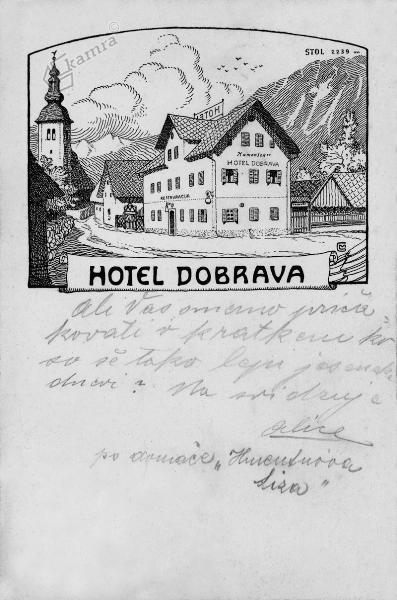 kamra
STOL 2239 m
HOTEL
HOTEL DOBRAVA
RESTAVRACIJA
HOTEL DOBRAVA
Ali Vas smemo priča-
kovati v kratkem ko
so še tako lepi jesenski
dnevi? Na svidenje
Alice
po domače „
Liza"